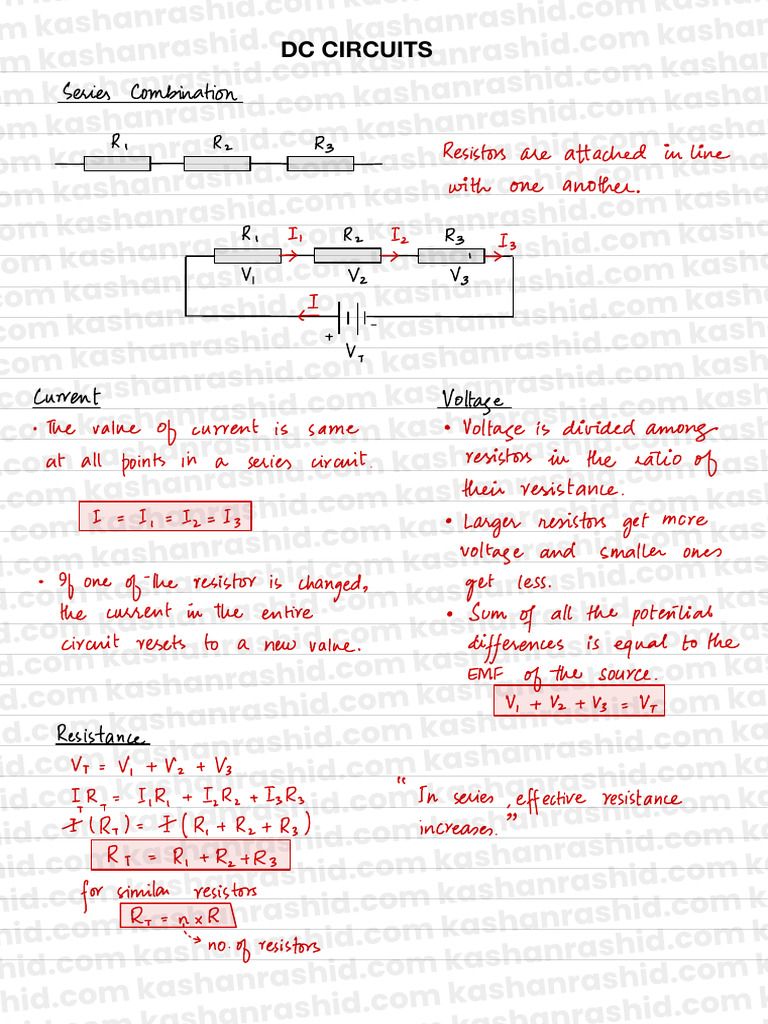 DC CIRCUITS
Series Combination
R1 R2 R3
Resistors are attached in line
with one another.
R1 I1 R2 I2 R3 I3
V1 V2 V3
I
+ -
VT
Current
• The value of current is same
at all points in a series circuit.
I = I1 = I2 = I3
• If one of the resistor is changed,
the current in the entire
circuit resets to a new value.
Voltage
• Voltage is divided among
resistors in the ratio of
their resistance.
• Larger resistors get more
voltage and smaller ones
get less.
• Sum of all the potential
differences is equal to the
EMF of the source.
V1 + V2 + V3 = VT
Resistance
VT = V1 + V2 + V3
ITRT = I1R1 + I2R2 + I3R3
I(RT) = I(R1 + R2 + R3)
RT = R1 + R2 + R3
for similar resistors
RT = n × R
no. of resistors
"In series, effective resistance
increases."
kashanrashid.com